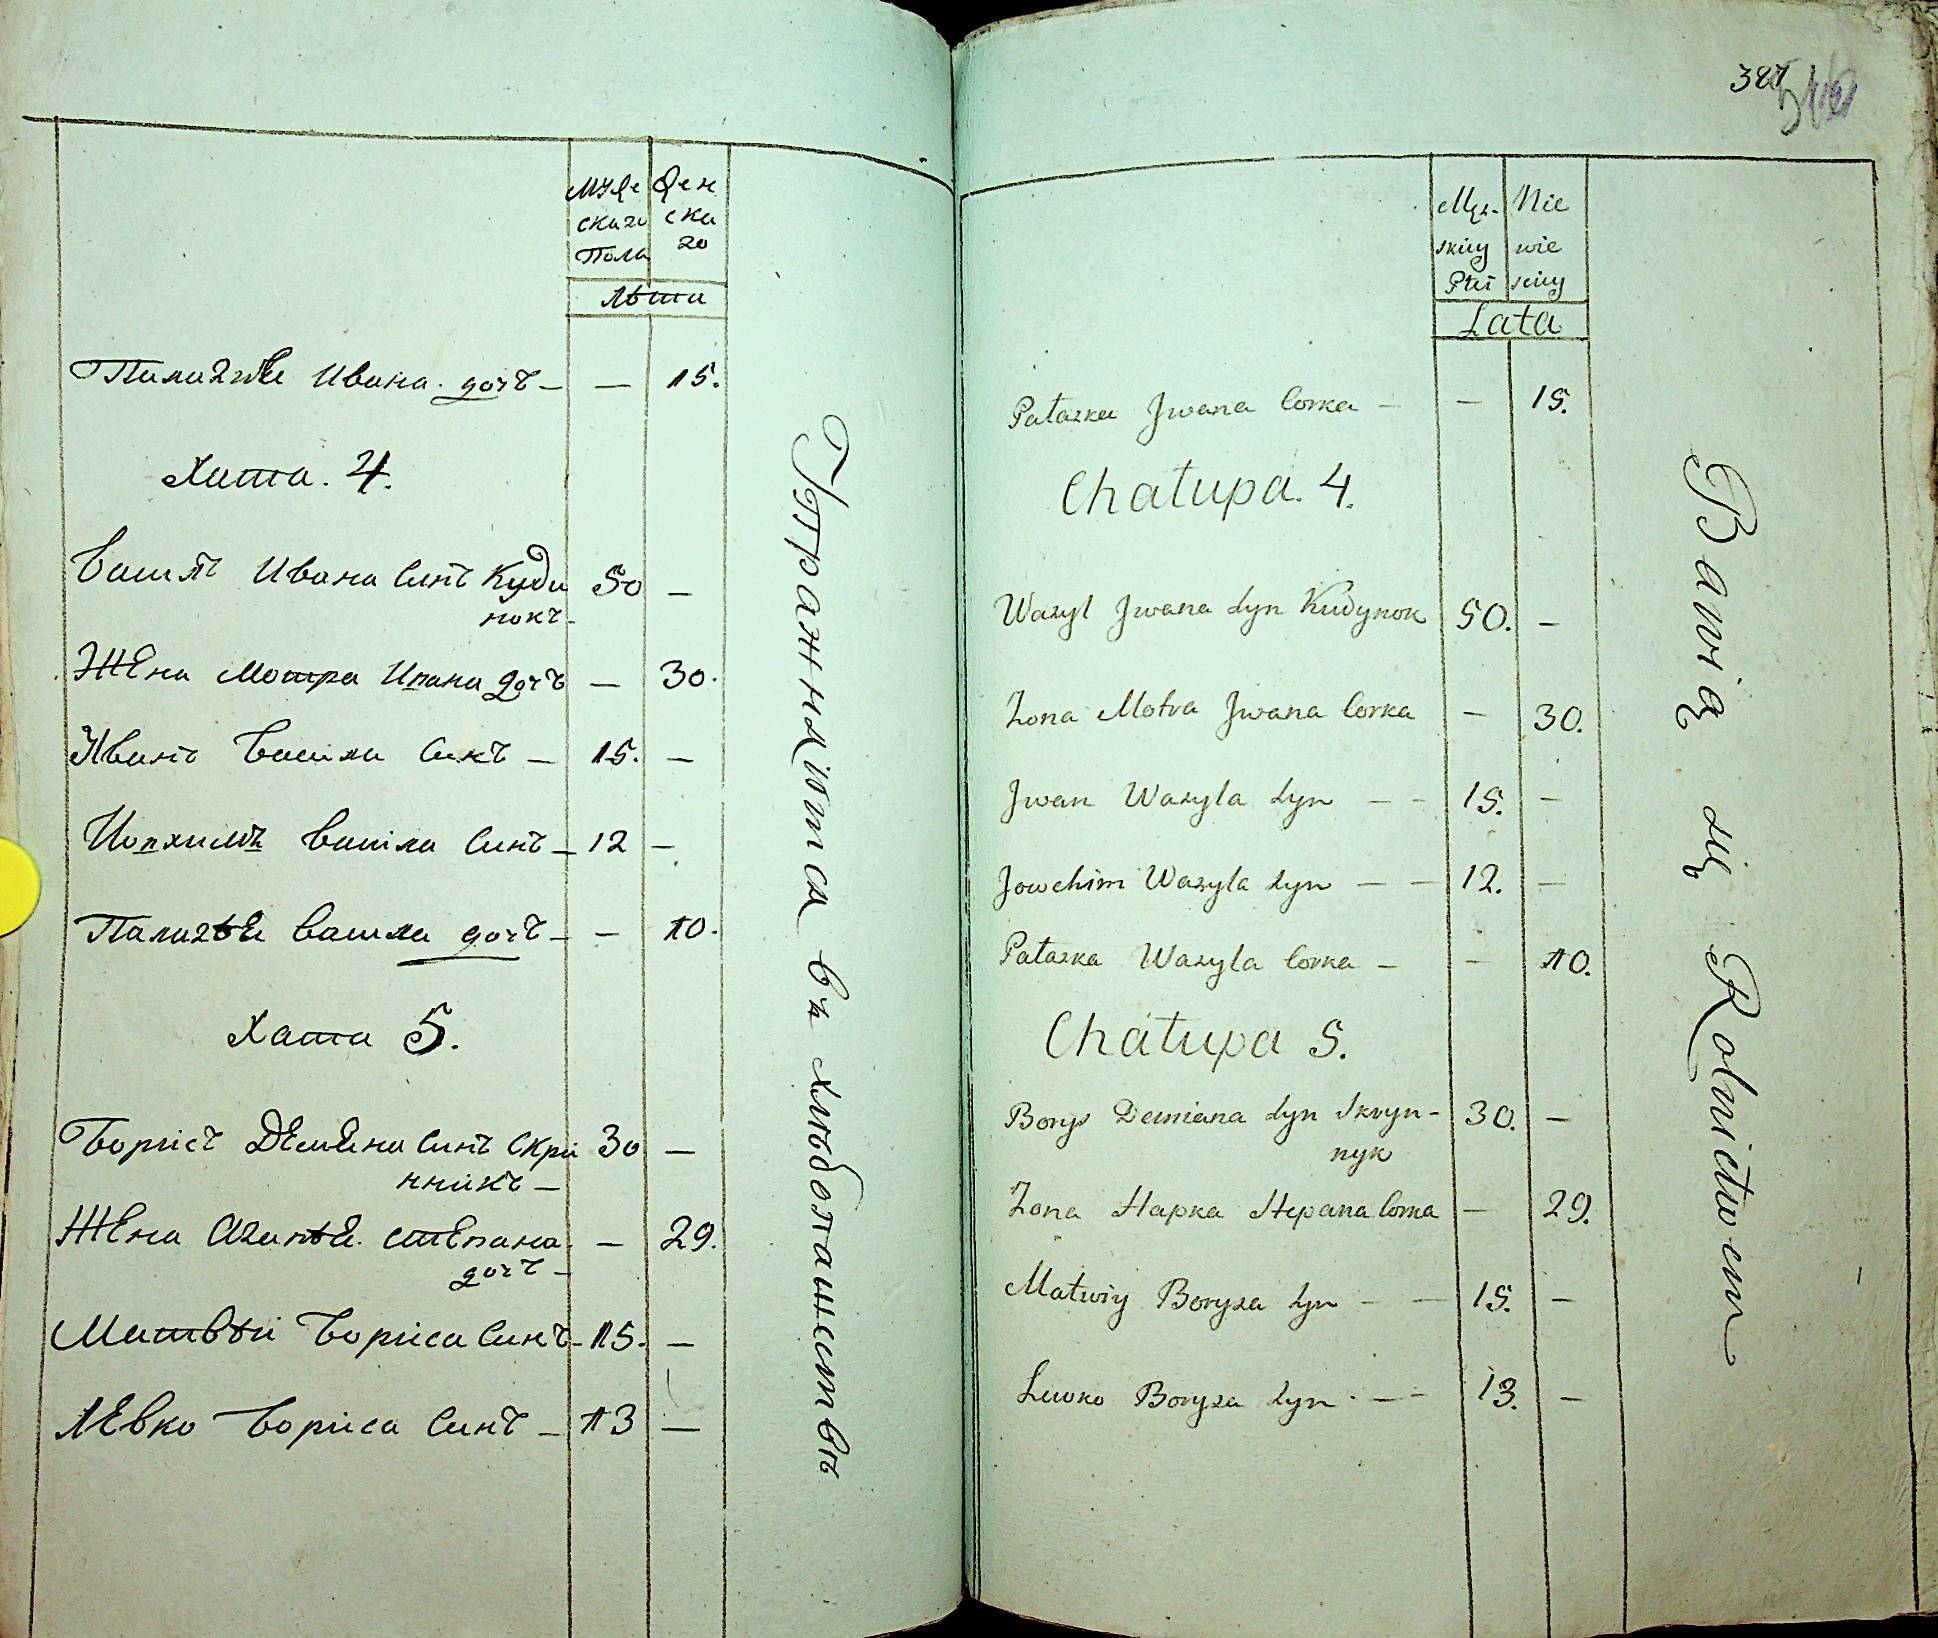 Мужескаго Пола
Женскаго
Лѣта
Палагѣя Ивана дочъ — — 15.
Хата. 4.
Василъ Ивана Синъ Куди 50 —
нокъ —
Жена Мотра Ивана дочъ — 30.
Иванъ Василя Синъ — 15. —
Иоахимъ Василя Синъ — 12 —
Палагѣя Василя дочъ — — 10.
Хата 5.
Борисъ Демяна Синъ Скри 30 —
нникъ —
Жена Агапѣя Степана — 29.
дочъ —
Матвѣй Бориса Синъ — 15. —
Левко Бориса Синъ — 13 —
Упражняются въ хлѣбопашествѣ
387
Męzskiey Płci
Niewieściey
Lata
Pałazka Jwana Corka — — 15.
Chałupa. 4.
Wasyl Jwana Syn Kudynok 50. —
Zona Motra Jwana Corka — 30.
Jwan Wasyla Syn — — 15. —
Jowchim Wasyla Syn — — 12. —
Pałazka Wasyla Corka — — 10.
Chałupa 5.
Borys Demiana Syn Skryn- 30. —
nyk
Zona Hapka Stepana Corka — 29.
Matwiy Borysa Syn — — 15. —
Lewko Borysa Syn — — 13. —
Bawią się Rolnictwem